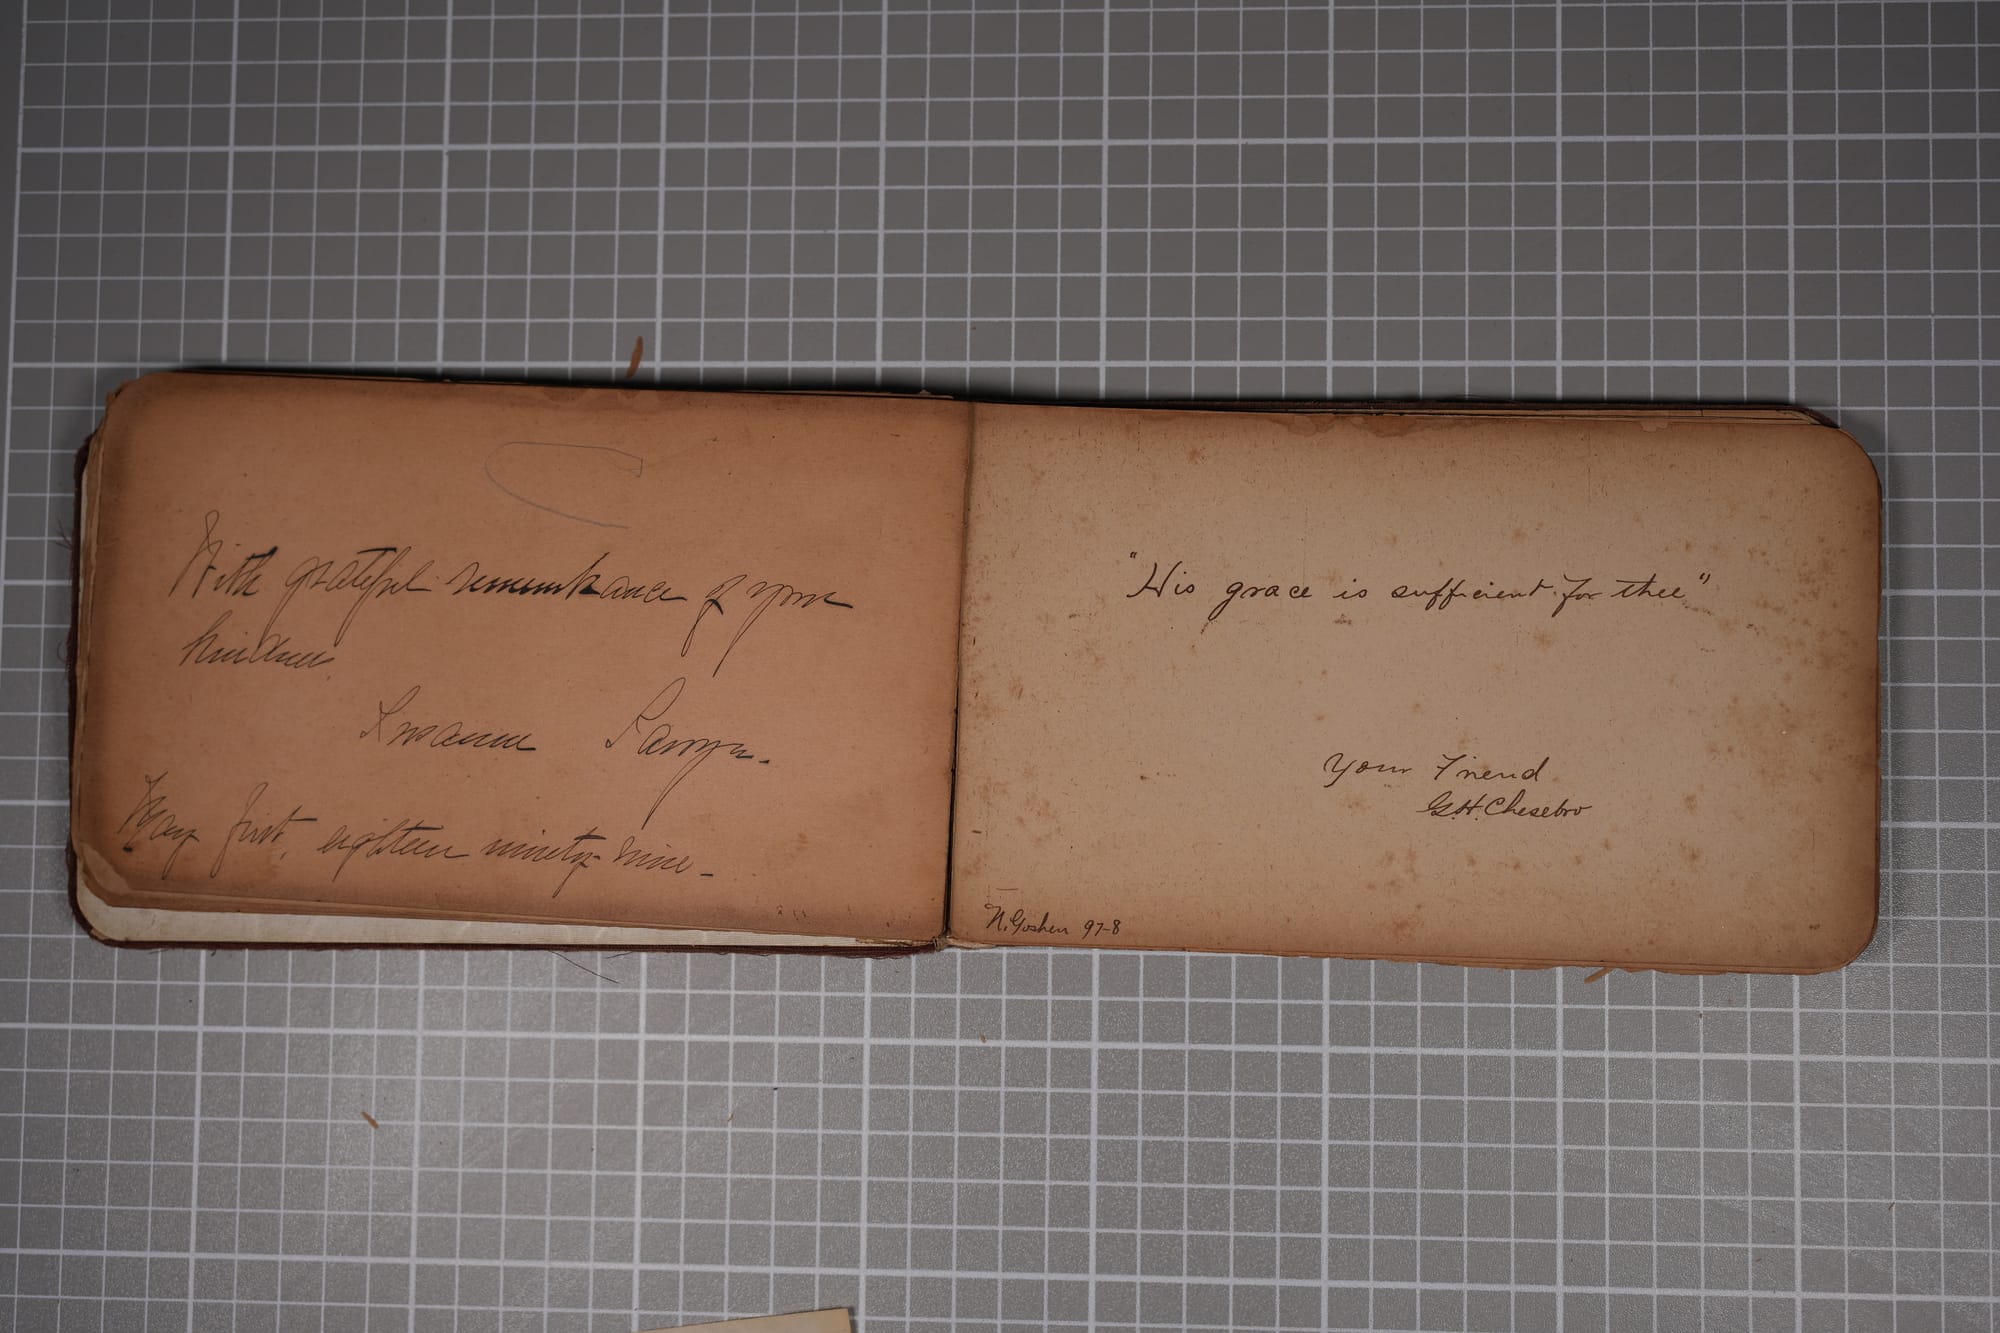 With grateful remembrance of your
kindness.
Susanne
May first, eighteen ninety-nine -
"His grace is sufficient for thee"
Your Friend
G.H. Chesebro
N. Goshen 97-8